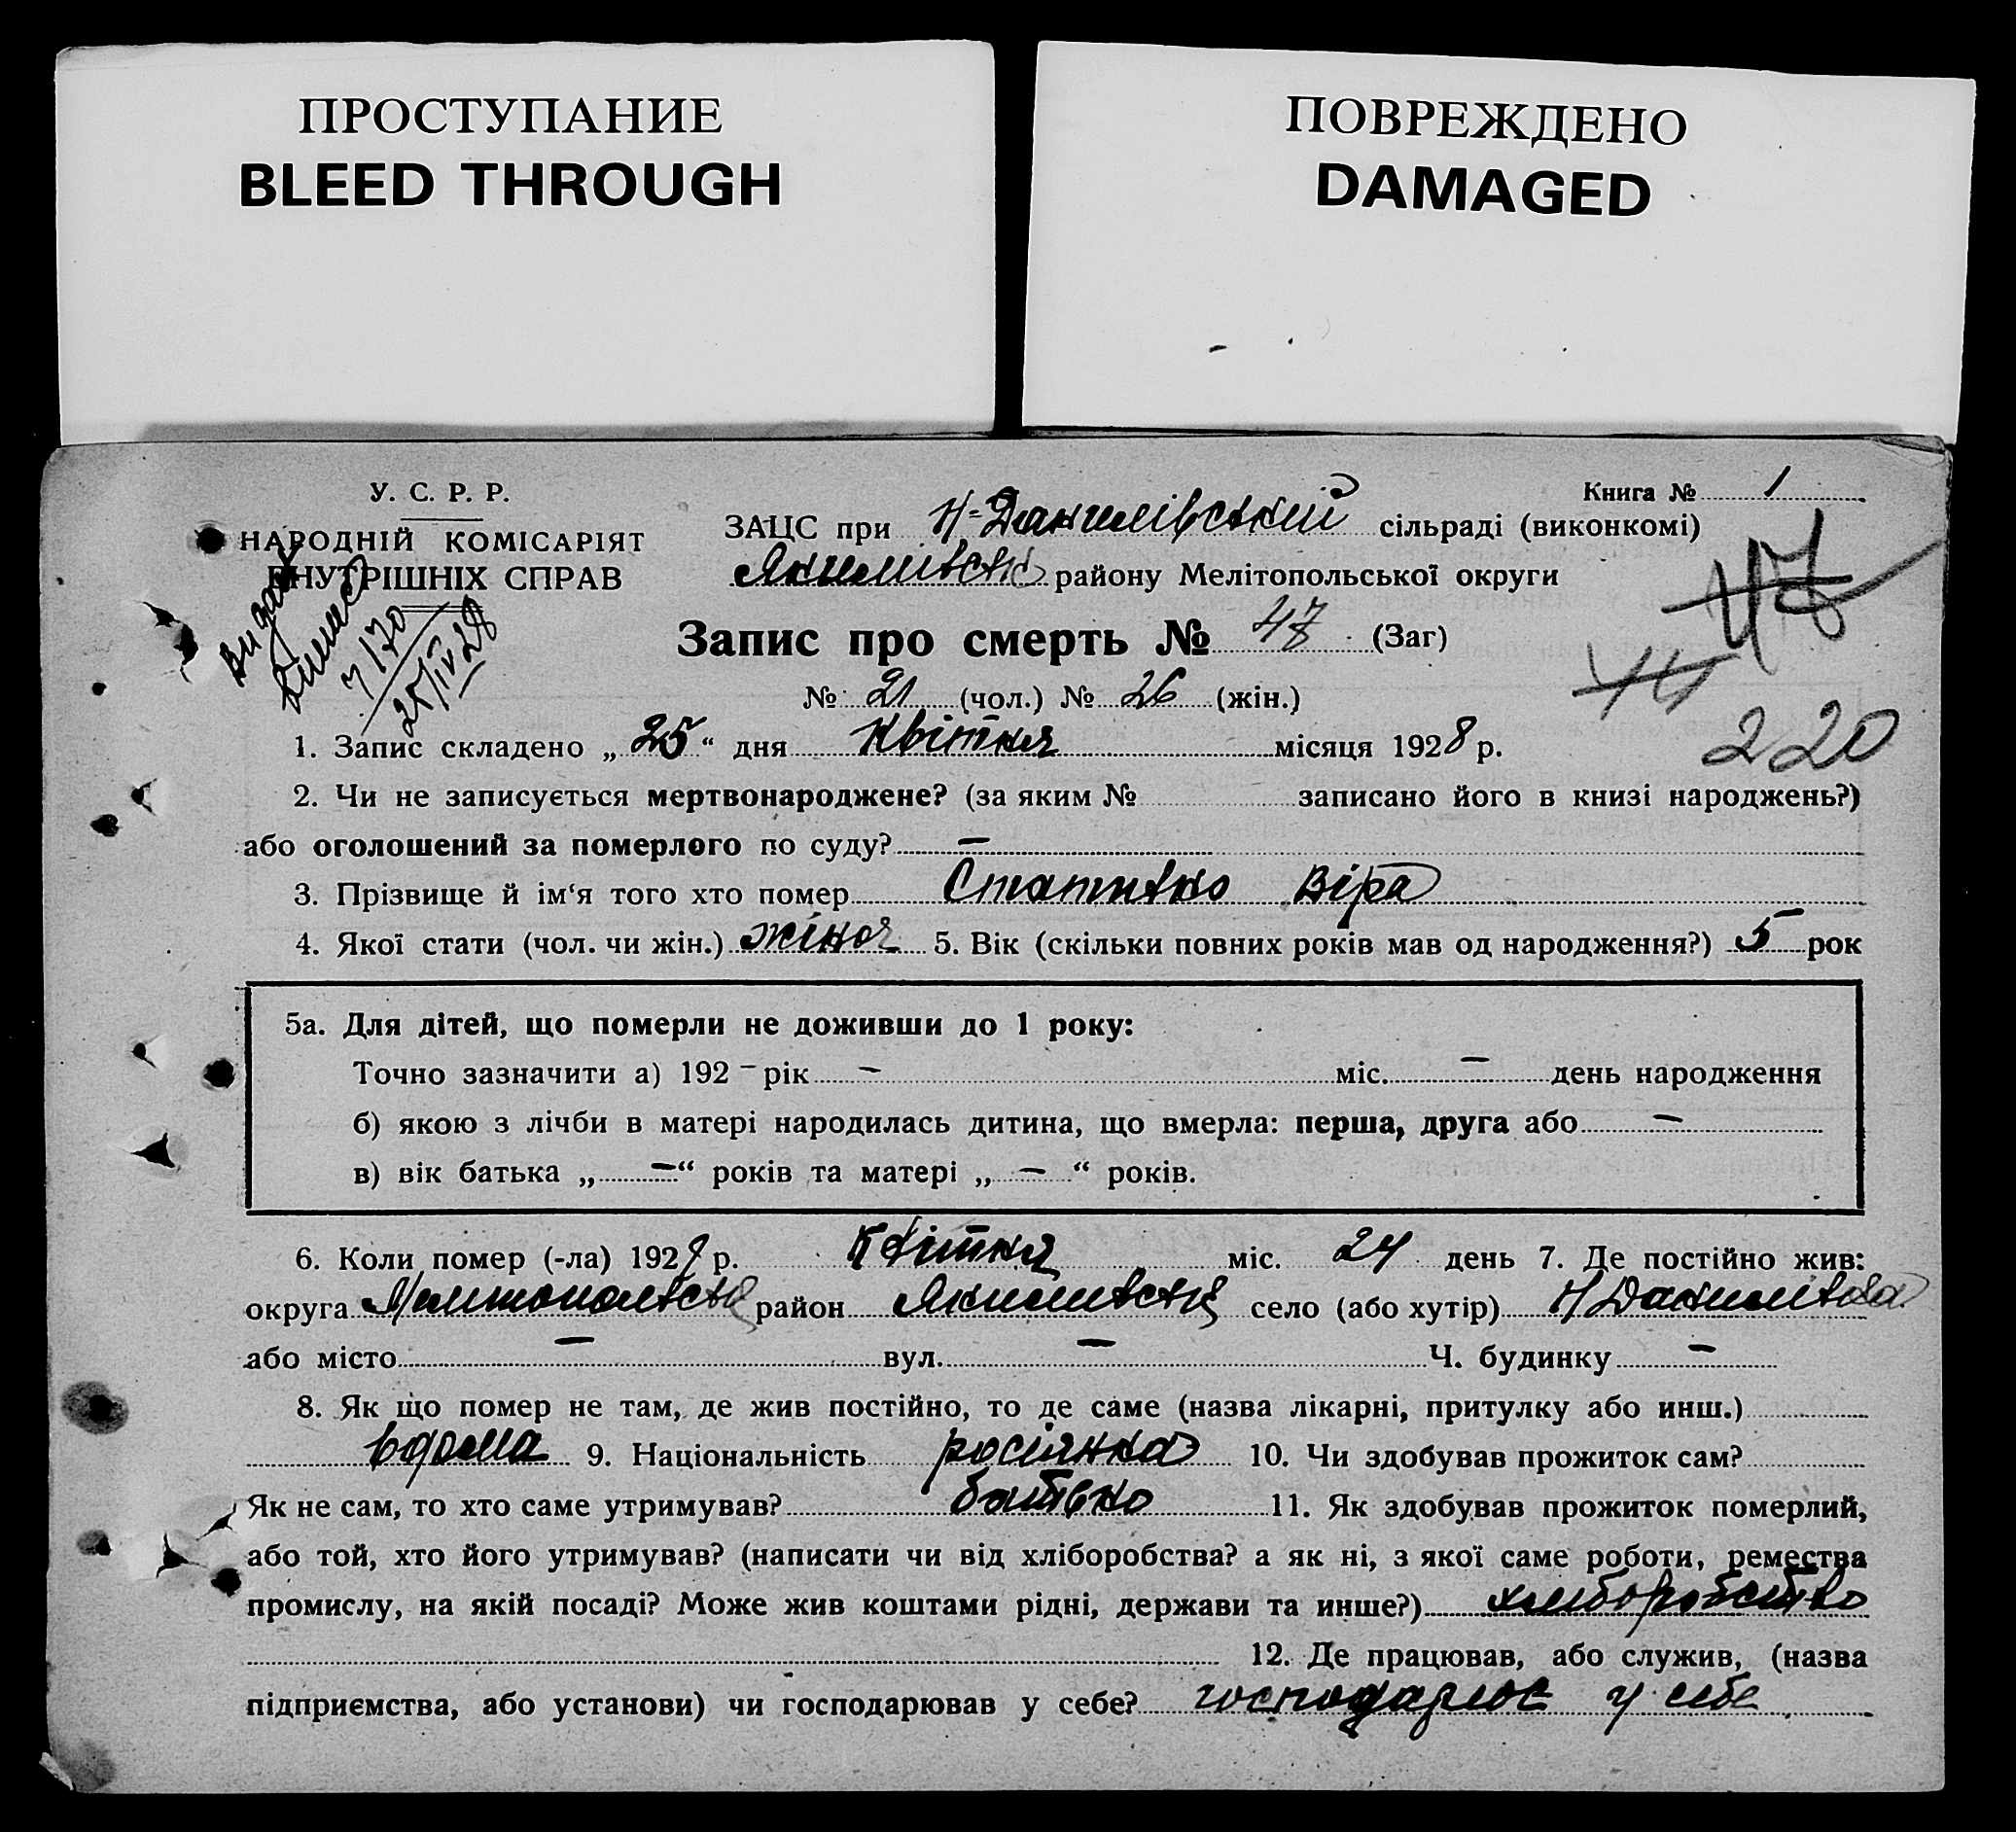 ПРОСТУПАНИЕ
BLEED THROUGH
ПОВРЕЖДЕНО
DAMAGED
У. С. Р. Р.
НАРОДНІЙ КОМІСАРІЯТ
ВНУТРІШНІХ СПРАВ
Книга № 1
ЗАЦС при Н-Данилівській сільраді (виконкомі)
Якимівськ району Мелітопольської округи
Видано
7170
25/IV 28
47
Запис про смерть № 47 (Заг)
44
№ 21 (чол.) № 26 (жін.)
220
1. Запис складено „25“ дня Квітня місяця 1928 р.
2. Чи не записується мертвонароджене? (за яким № записано його в книзі народжень?)
або оголошений за померлого по суду? —
3. Прізвище й ім‘я того хто помер Стативко Віра
4. Якої стати (чол. чи жін.) жіноч 5. Вік (скільки повних років мав од народження?) 5 рок
5а. Для дітей, що померли не доживши до 1 року:
Точно зазначити а) 192 – рік – міс. – день народження
б) якою з лічби в матері народилась дитина, що вмерла: перша, друга або —
в) вік батька „—“ років та матері „—“ років.
6. Коли помер (-ла) 192 р. Квітня міс. 24 день 7. Де постійно жив:
округа Мелитопольська район Якимівський село (або хутір) Н Данилівка
або місто — вул. — Ч. будинку —
8. Як що помер не там, де жив постійно, то де саме (назва лікарні, притулку або инш.)
вдома 9. Національність росіянка 10. Чи здобував прожиток сам?
Як не сам, то хто саме утримував? батько 11. Як здобував прожиток померлий,
або той, хто його утримував? (написати чи від хліборобства? а як ні, з якої саме роботи, ремества
промислу, на якій посаді? Може жив коштами рідні, держави та инше?) хліборобство
12. Де працював, або служив, (назва
підприємства, або установи) чи господарював у себе? господарює у себе